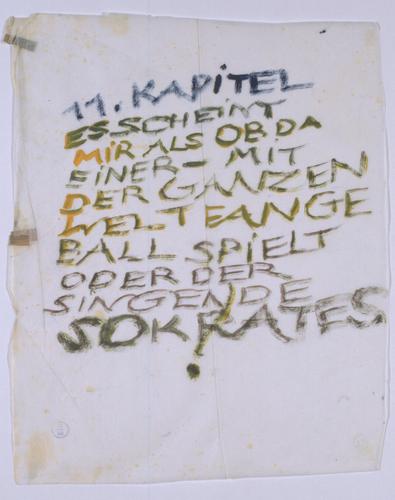 11. KAPITEL
ES SCHEINT
MIR ALS OB DA
EINER – MIT
DER GANZEN
WELT EANGE
BALL SPIELT
ODER DER
SINGENDE
SOKRATES!